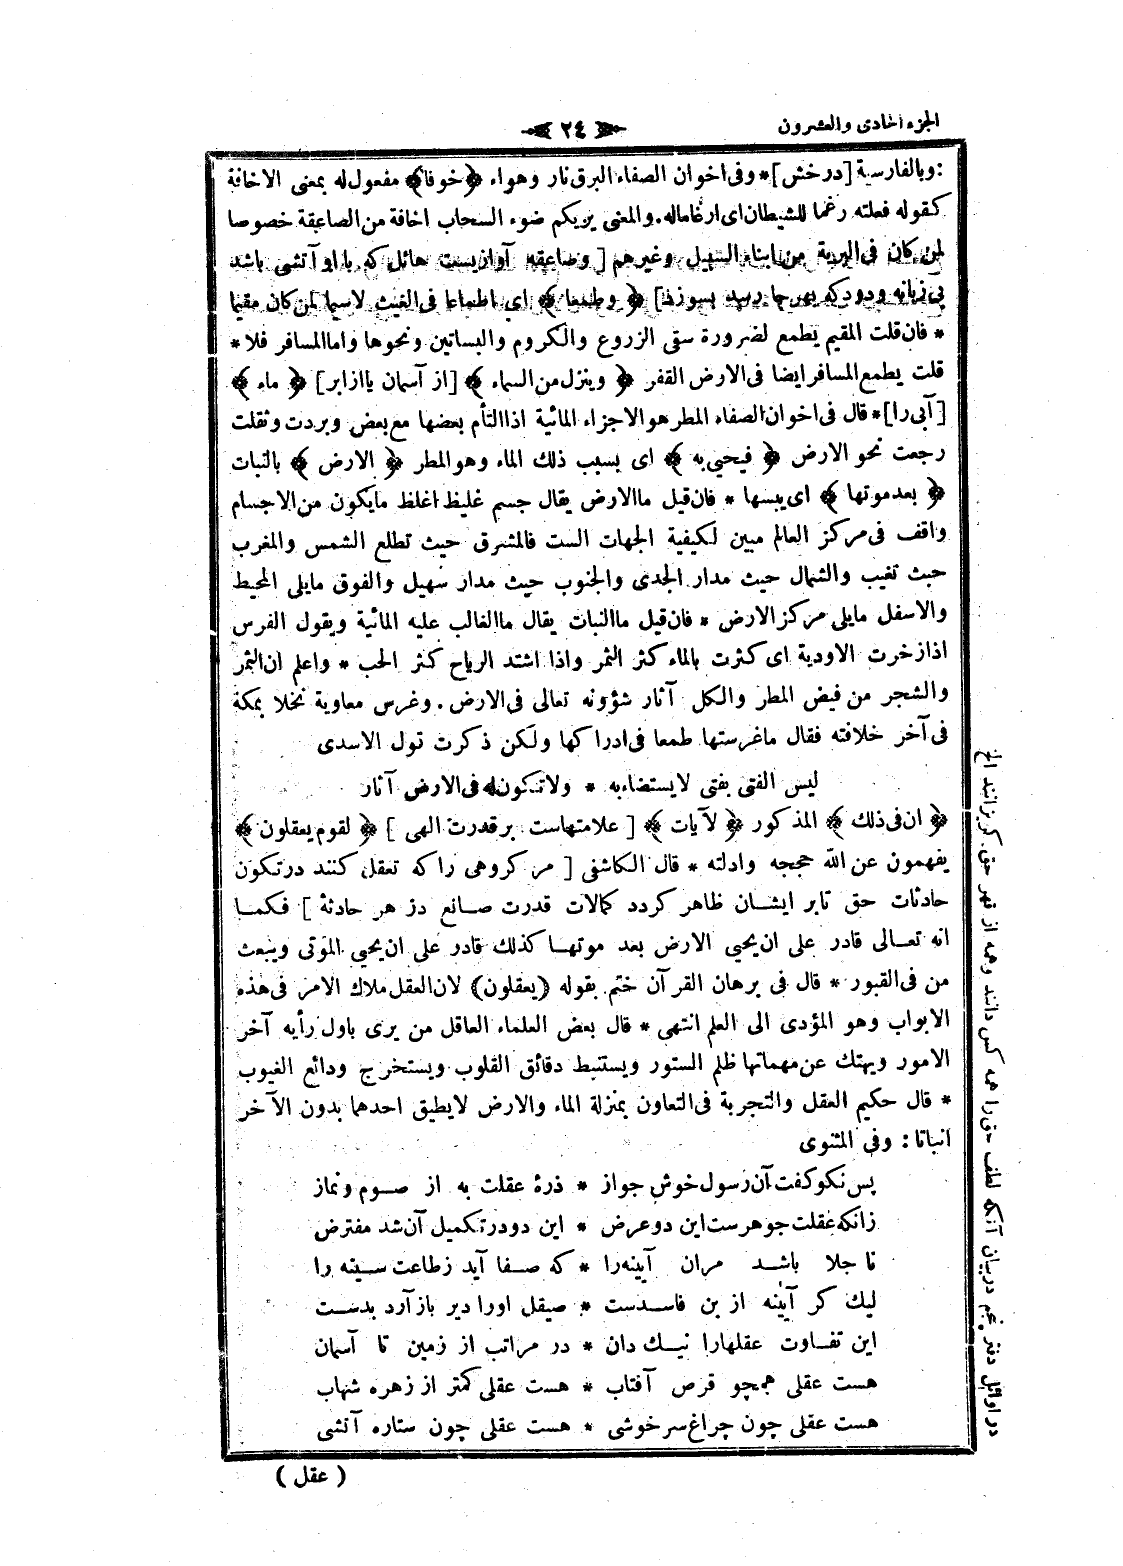 الجزء الحادى والعشرون
٢٤
: وبالفارسية [درخش] * وفى اخوان الصفاء البرق نار وهواء ﴿خوفا﴾ مفعول له بمعنى الاخافة
كقوله فعلته رغما للشيطان اى ارغاماله . والمعنى يريكم ضوء السحاب اخافة من الصاعقة خصوصا
لمن كان فى البرية من ابناء السبيل وغيرهم [ وصاعقه آوازيست هائل كه با او آتشى باشد
بى زبانه ودود كه بهر جا رسد بسوزد] ﴿ وطمعا ﴾ اى اطماعا فى الغيث لاسيما لمن كان مقيما
* فان قلت المقيم يطمع لضرورة سقى الزروع والكروم والبساتين ونحوها واما المسافر فلا *
قلت يطمع المسافر ايضا فى الارض القفر ﴿ وينزل من السماء ﴾ [از آسمان يا از ابر] ﴿ ماء ﴾
[آبى را] * قال فى اخوان الصفاء المطر هو الاجزاء المائية اذا التأم بعضها مع بعض وبردت وثقلت
رجعت نحو الارض ﴿ فيحيى به ﴾ اى بسبب ذلك الماء وهو المطر ﴿ الارض ﴾ بالنبات
﴿ بعد موتها ﴾ اى يبسها * فان قيل ما الارض يقال جسم غليظ اغلظ مايكون من الاجسام
واقف فى مركز العالم مبين لكيفية الجهات الست فالمشرق حيث تطلع الشمس والمغرب
حيث تغيب والشمال حيث مدار الجدى والجنوب حيث مدار سهيل والفوق مايلى المحيط
والاسفل مايلى مركز الارض * فان قيل ما النبات يقال ما الغالب عليه المائية ويقول الفرس
اذا زخرت الاودية اى كثرت بالماء كثر الثمر واذا اشتد الرياح كثر الحب * واعلم ان الثمر
والشجر من فيض المطر والكل آثار شؤونه تعالى فى الارض . وغرس معاوية نخلا بمكة
فى آخر خلافته فقال ماغرستها طمعا فى ادراكها ولكن ذكرت قول الاسدى
ليس الفتى بفتى لا يستضاء به * ولا تكون له فى الارض آثار
﴿ ان فى ذلك ﴾ المذكور ﴿ لآيات ﴾ [ علامتهاست بر قدرت الهى ] ﴿ لقوم يعقلون ﴾
يفهمون عن الله حججه وادلته * قال الكاشفى [ مر كروهى را كه تعقل كنند در تكون
حادثات حق تا بر ايشان ظاهر كردد كمالات قدرت صانع در هر حادثة ] فكما
انه تعالى قادر على ان يحيى الارض بعد موتها كذلك قادر على ان يحيى الموتى ويبعث
من فى القبور * قال فى برهان القرآن ختم بقوله (يعقلون) لان العقل ملاك الامر فى هذه
الابواب وهو المؤدى الى العلم انتهى * قال بعض العلماء العاقل من يرى باول رأيه آخر
الامور ويهتك عن مهماتها ظلم الستور ويستنبط دقائق القلوب ويستخرج ودائع الغيوب
* قال حكيم العقل والتجربة فى التعاون بمنزلة الماء والارض لايطيق احدهما بدون الآخر
انباتا : وفى المثنوى
پس نكو كفت آن رسول خوش جواز * ذرۀ عقلت به از صوم ونماز
زانكه عقلت جوهرست اين دو عرض * اين دو در تكميل آن شد مفترض
تا جلا باشد مران آيينه را * كه صفا آيد زطاعت سينه را
ليك كر آيينه از بن فاسدست * صيقل اورا دير باز آرد بدست
اين تفاوت عقلهارا نيك دان * در مراتب از زمين تا آسمان
هست عقلى همچو قرص آفتاب * هست عقلى كمتر از زهره شهاب
هست عقلى چون چراغ سرخوشى * هست عقلى چون ستاره آتشى
( عقل )
در اوائل دفتر پنجم در بيان آنكه لطف حق را همه كس دانند وهمه از قهر حق كريزانند الخ